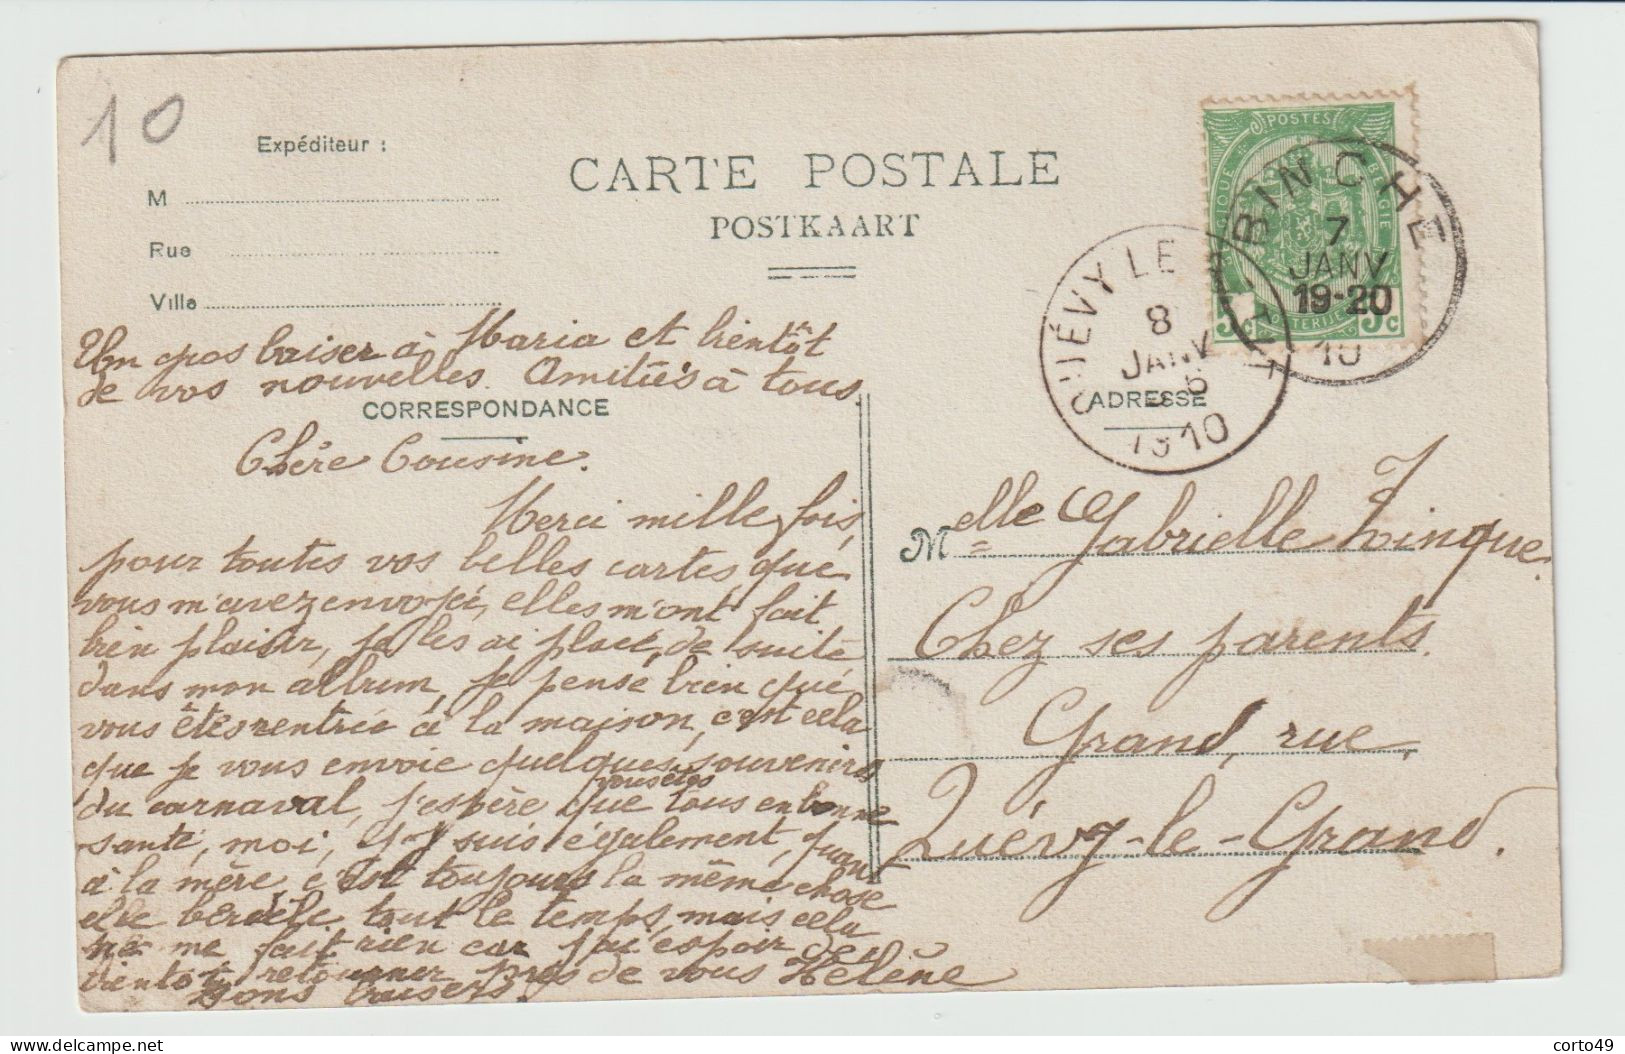 10
Expéditeur :
M
Rue
Ville
CARTE POSTALE
POSTKAART
POSTES
BINCHE
7
JANV
19-20
10
QUÉVY LE
8
JANV
1910
5c 5c
Un gros baiser à Maria et bientôt
de vos nouvelles. Amitiés à tous.
CORRESPONDANCE
ADRESSE
Chère Cousine.
Merci mille fois,
pour toutes vos belles cartes que
vous m'avez envoyé, elles m'ont fait
bien plaisir, je les ai placé, de suite
dans mon album, je pense bien que
vous êtes rentrée à la maison, c'est cela
que je vous envoie quelques souvenirs
du carnaval, j'espère que vous êtes tous en bonne
santé, moi, j'y suis également, quant
à la mère, c'est toujours la même chose
elle tout le temps, mais cela
ne me fait rien car j'ai espoir de
bientôt, retourner près de vous Hélène
Bons baisers.
Melle Gabrielle
Chez ses parents.
Grand, rue,
Quévy-le-Grand.
corto49
delcampe.net